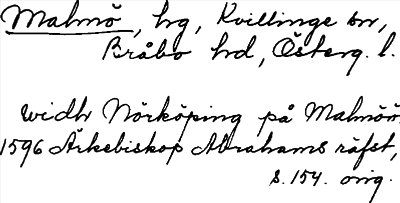 Malmö, hg, Kvillinge sn,
Bråbo hd, Österg. l.
widh Nörköping på Malmöö
1596 Ärkebiskop Abrahams räfst,
s. 154. orig.